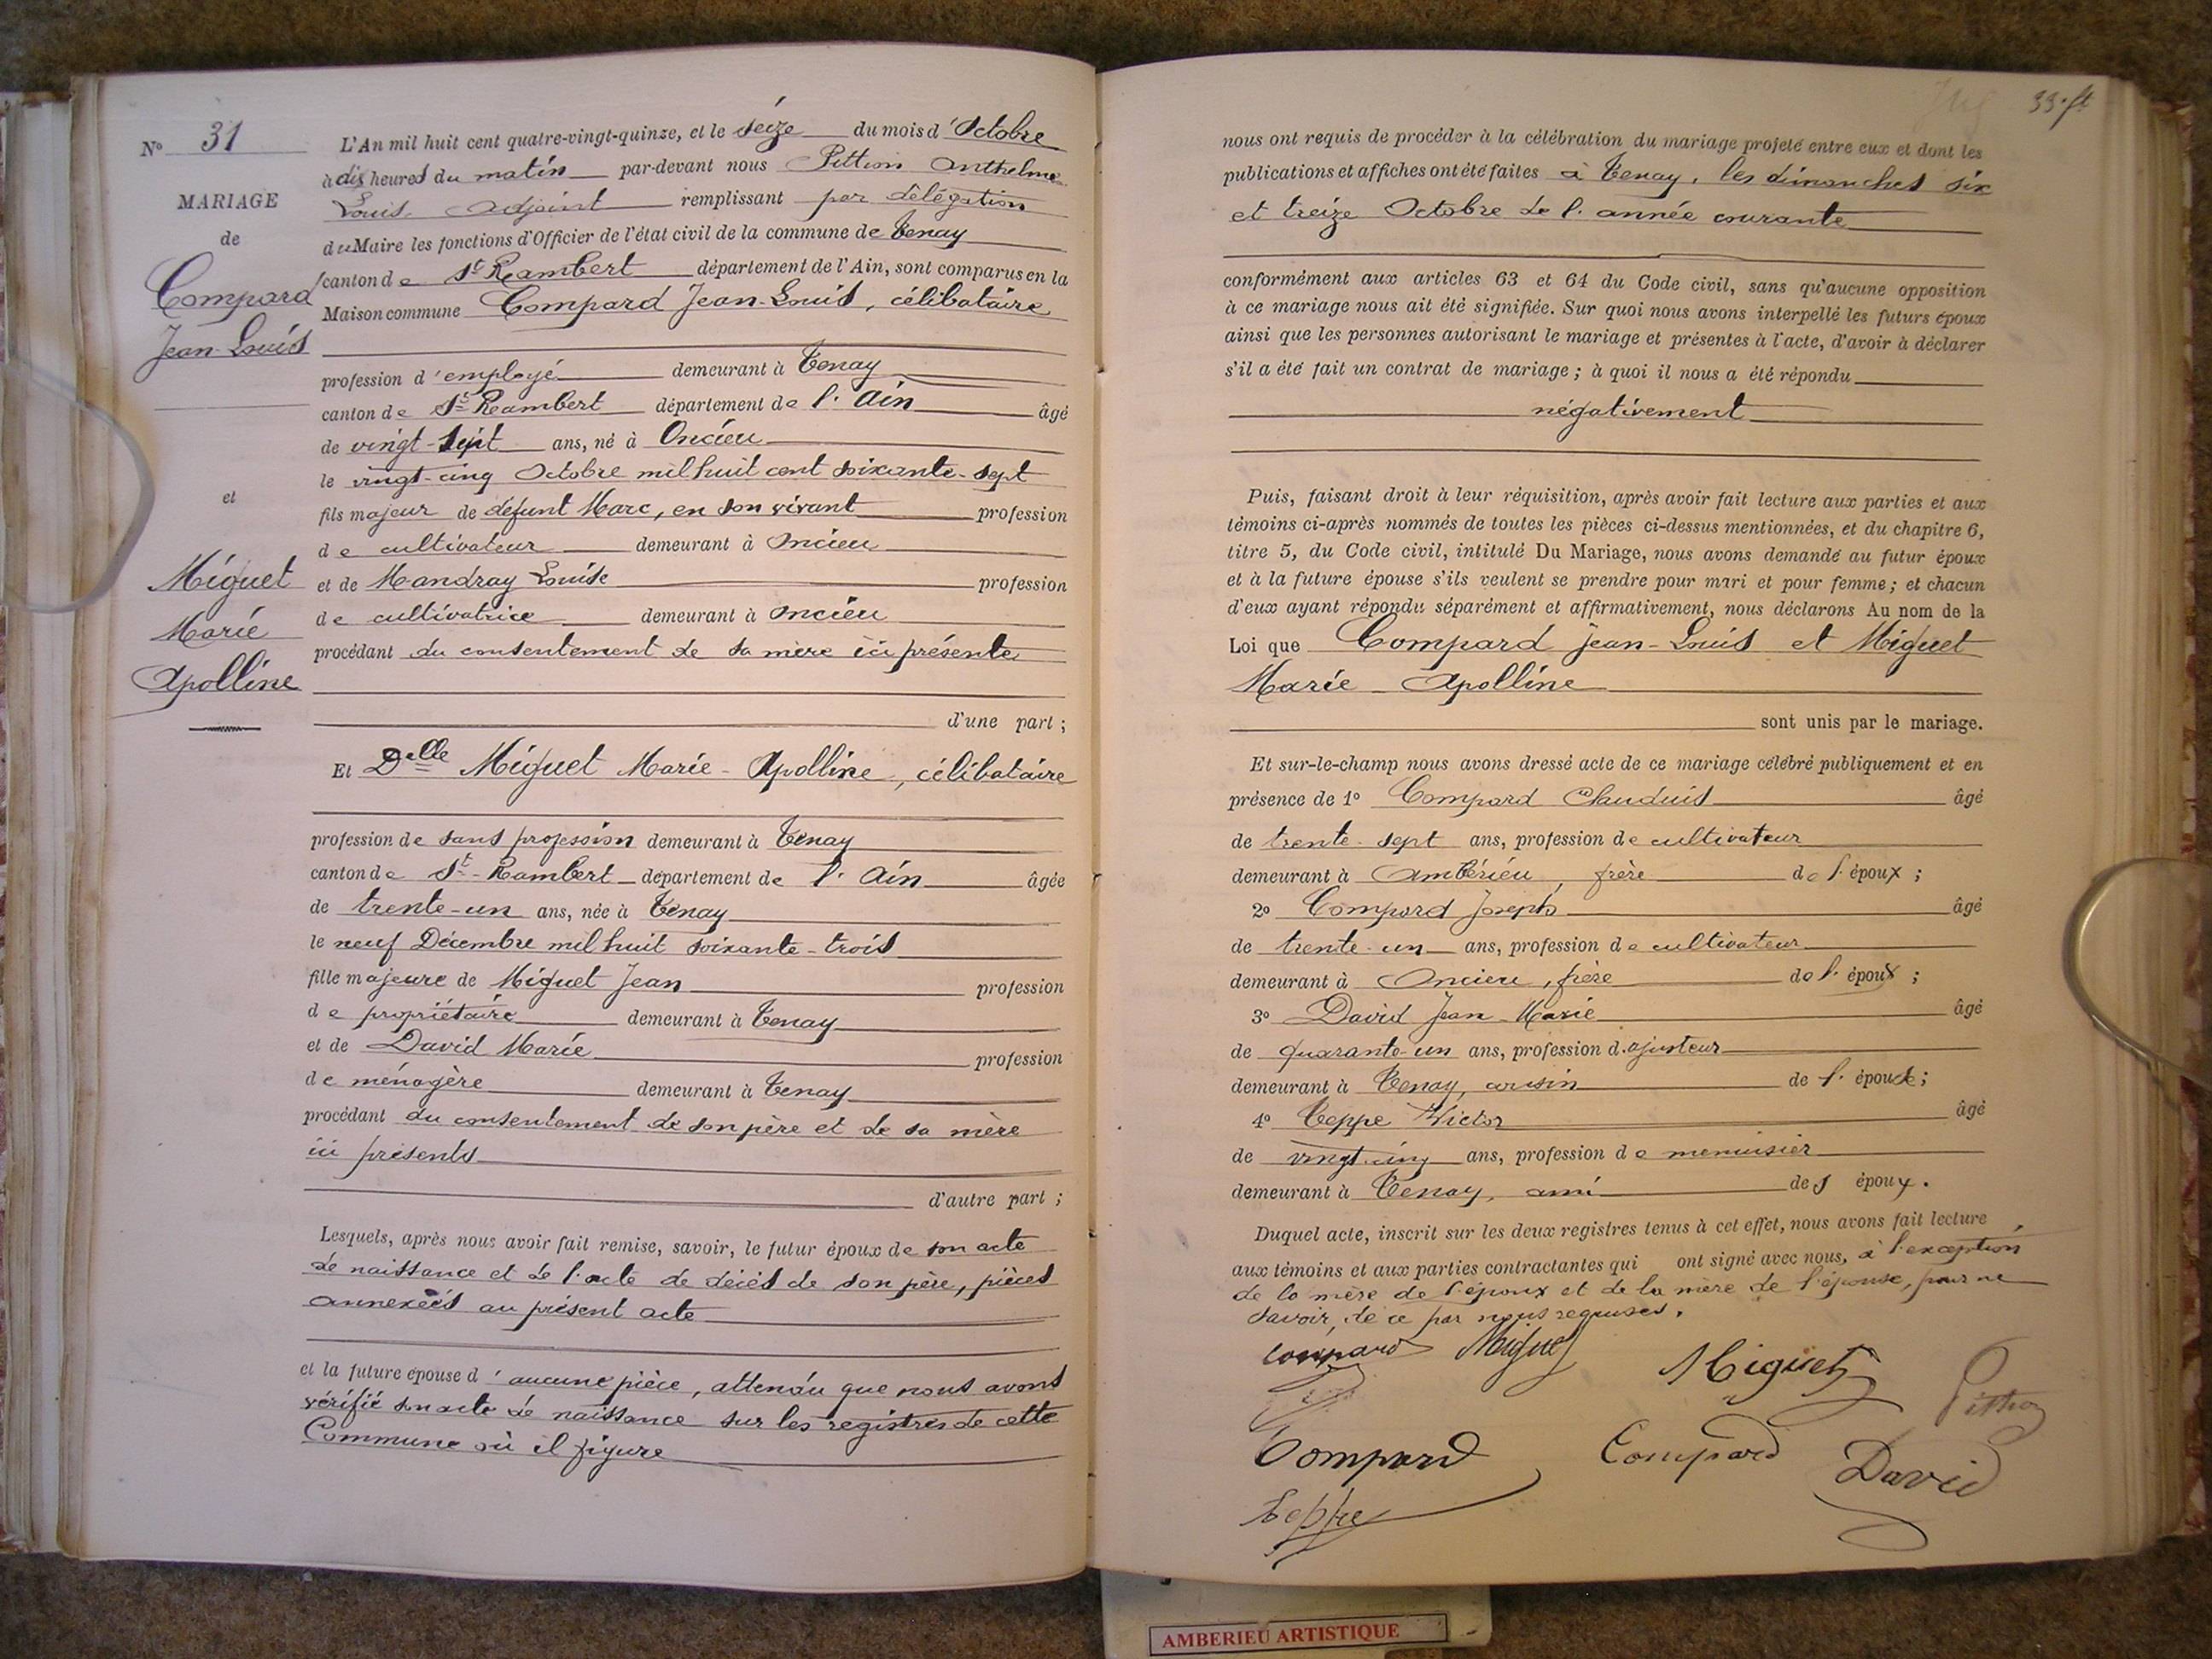 N° 31
MARIAGE
de
Compard
Jean-Louis
et
Miguet
Marie
Apolline
L'An mil huit cent quatre-vingt-quinze, et le seize du mois d'Octobre
à dix heures du matin par-devant nous Pittion Anthelme
Louis, adjoint remplissant par délégation
du Maire les fonctions d'Officier de l'état civil de la commune de Tenay
canton de St Rambert département de l'Ain, sont comparus en la
Maison commune Compard Jean-Louis, célibataire
profession d'employé demeurant à Tenay
canton de St Rambert département de l'Ain âgé
de vingt-sept ans, né à Oncieu
le vingt-cinq Octobre mil huit cent soixante-sept
fils majeur de défunt Marc, en son vivant profession
de cultivateur demeurant à Oncieu
et de Mandray Louise profession
de cultivatrice demeurant à Oncieu
procédant du consentement de sa mère ici présente
d'une part ;
Et Delle Miguet Marie-Apolline, célibataire
profession de sans profession demeurant à Tenay
canton de St-Rambert département de l'Ain âgée
de trente-un ans, née à Tenay
le neuf Décembre mil huit soixante-trois
fille majeure de Miguet Jean profession
de propriétaire demeurant à Tenay
et de David Marie profession
de ménagère demeurant à Tenay
procédant du consentement de son père et de sa mère
ici présents
d'autre part ;
Lesquels, après nous avoir fait remise, savoir, le futur époux de son acte
de naissance et de l'acte de décès de son père, pièces
annexées au présent acte
et la future épouse d'aucune pièce, attendu que nous avons
vérifié son acte de naissance sur les registres de cette
Commune où il figure
33. ft
nous ont requis de procéder à la célébration du mariage projeté entre eux et dont les
publications et affiches ont été faites à Tenay, les dimanches six
et treize Octobre de l'année courante
conformément aux articles 63 et 64 du Code civil, sans qu'aucune opposition
à ce mariage nous ait été signifiée. Sur quoi nous avons interpellé les futurs époux
ainsi que les personnes autorisant le mariage et présentes à l'acte, d'avoir à déclarer
s'il a été fait un contrat de mariage ; à quoi il nous a été répondu
négativement
Puis, faisant droit à leur réquisition, après avoir fait lecture aux parties et aux
témoins ci-après nommés de toutes les pièces ci-dessus mentionnées, et du chapitre 6,
titre 5, du Code civil, intitulé Du Mariage, nous avons demandé au futur époux
et à la future épouse s'ils veulent se prendre pour mari et pour femme ; et chacun
d'eux ayant répondu séparément et affirmativement, nous déclarons Au nom de la
Loi que Compard Jean-Louis et Miguet
Marie-Apolline
sont unis par le mariage.
Et sur-le-champ nous avons dressé acte de ce mariage célébré publiquement et en
présence de 1° Compard Claudius âgé
de trente-sept ans, profession de cultivateur
demeurant à Ambérieu, frère de l'époux ;
2° Compard Joseph âgé
de trente-un ans, profession de cultivateur
demeurant à Oncieu, frère de l'époux ;
3° David Jean-Marie âgé
de quarante-un ans, profession d'ajusteur
demeurant à Tenay, cousin de l'épouse ;
4° Teppe Victor âgé
de vingt-cinq ans, profession de menuisier
demeurant à Tenay, ami des époux.
Duquel acte, inscrit sur les deux registres tenus à cet effet, nous avons fait lecture
aux témoins et aux parties contractantes qui ont signé avec nous, à l'exception
de la mère de l'époux et de la mère de l'épouse, pour ne
savoir, de ce par nous requises.
Compard Miguet Miguet Pittion
Compard Compard David
Teppe
AMBERIEU ARTISTIQUE